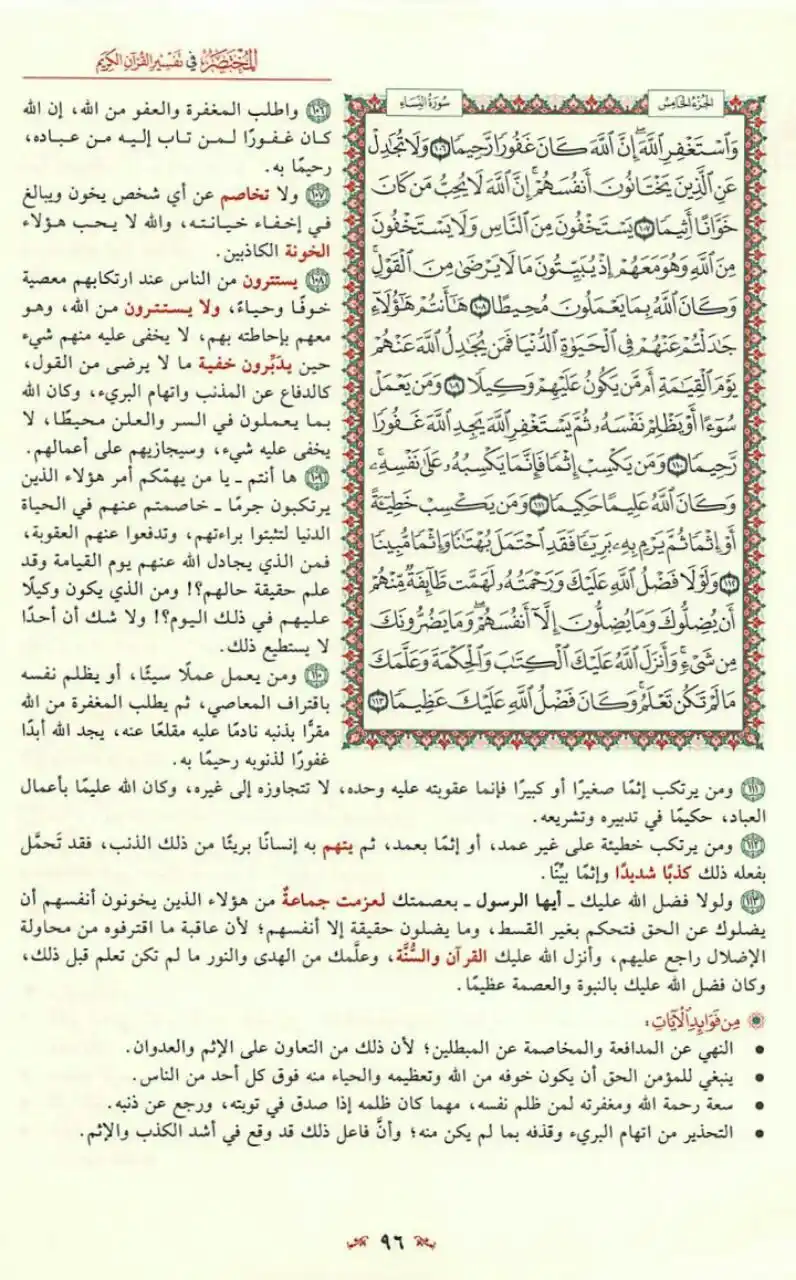 المختصر في تفسير القرآن الكريم
الجزء الخامس
سورة النساء
وَٱسۡتَغۡفِرِ ٱللَّهَۖ إِنَّ ٱللَّهَ كَانَ غَفُورٗا رَّحِيمٗا ١٠٦ وَلَا تُجَٰدِلۡ
عَنِ ٱلَّذِينَ يَخۡتَانُونَ أَنفُسَهُمۡۚ إِنَّ ٱللَّهَ لَا يُحِبُّ مَن كَانَ
خَوَّانًا أَثِيمٗا ١٠٧ يَسۡتَخۡفُونَ مِنَ ٱلنَّاسِ وَلَا يَسۡتَخۡفُونَ
مِنَ ٱللَّهِ وَهُوَ مَعَهُمۡ إِذۡ يُبَيِّتُونَ مَا لَا يَرۡضَىٰ مِنَ ٱلۡقَوۡلِۚ
وَكَانَ ٱللَّهُ بِمَا يَعۡمَلُونَ مُحِيطًا ١٠٨ هَٰٓأَنتُمۡ هَٰٓؤُلَآءِ
جَٰدَلۡتُمۡ عَنۡهُمۡ فِي ٱلۡحَيَوٰةِ ٱلدُّنۡيَا فَمَن يُجَٰدِلُ ٱللَّهَ عَنۡهُمۡ
يَوۡمَ ٱلۡقِيَٰمَةِ أَم مَّن يَكُونُ عَلَيۡهِمۡ وَكِيلٗا ١٠٩ وَمَن يَعۡمَلۡ
سُوٓءًا أَوۡ يَظۡلِمۡ نَفۡسَهُۥ ثُمَّ يَسۡتَغۡفِرِ ٱللَّهَ يَجِدِ ٱللَّهَ غَفُورٗا
رَّحِيمٗا ١١٠ وَمَن يَكۡسِبۡ إِثۡمٗا فَإِنَّمَا يَكۡسِبُهُۥ عَلَىٰ نَفۡسِهِۦۚ
وَكَانَ ٱللَّهُ عَلِيمًا حَكِيمٗا ١١١ وَمَن يَكۡسِبۡ خَطِيٓـَٔةً
أَوۡ إِثۡمٗا ثُمَّ يَرۡمِ بِهِۦ بَرِيٓـٔٗا فَقَدِ ٱحۡتَمَلَ بُهۡتَٰنٗا وَإِثۡمٗا مُّبِينٗا
١١٢ وَلَوۡلَا فَضۡلُ ٱللَّهِ عَلَيۡكَ وَرَحۡمَتُهُۥ لَهَمَّت طَّآئِفَةٞ مِّنۡهُمۡ
أَن يُضِلُّوكَ وَمَا يُضِلُّونَ إِلَّآ أَنفُسَهُمۡۖ وَمَا يَضُرُّونَكَ
مِن شَيۡءٖۚ وَأَنزَلَ ٱللَّهُ عَلَيۡكَ ٱلۡكِتَٰبَ وَٱلۡحِكۡمَةَ وَعَلَّمَكَ
مَا لَمۡ تَكُن تَعۡلَمُۚ وَكَانَ فَضۡلُ ٱللَّهِ عَلَيۡكَ عَظِيمٗا ١١٣
١٠٦ واطلب المغفرة والعفو من الله، إن الله
كان غفورًا لـمـن تـاب إليـه مـن عبـاده،
رحيمًا به.
١٠٧ ولا تخاصم عن أي شخص يخون ويبالغ
في إخـفـاء خيـانـتـه، والله لا يـحـب هـؤلاء
الخونة الكاذبين.
١٠٨ يستترون من الناس عند ارتكابهم معصية
خـوفًـا وحيـاءً، ولا يـسـتـترون مـن الله، وهـو
معهم بإحاطته بهم، لا يخفى عليه منهم شيء
حين يدَبِّرون خفية ما لا يرضى من القول،
كالدفاع عن المذنب واتهام البريء، وكان الله
بـما يعمـلـون في السر والعلن محيطًا، لا
يخفى عليه شيء، وسيجازيهم على أعمالهم.
١٠٩ ها أنتم ـ يا من يهمّكم أمر هؤلاء الذين
يرتكبون جرمًا ـ خاصمتم عنهم في الحياة
الدنيا لتثبتوا براءتهم، وتدفعوا عنهم العقوبة،
فمن الذي يجادل الله عنهم يوم القيامة وقد
علم حقيقة حالهم؟! ومن الذي يكون وكيلًا
عليـهـم في ذلـك اليـوم؟! ولا شـك أن أحـدًا
لا يستطيع ذلك.
١١٠ ومن يعمل عملًا سيئًا، أو يظلم نفسه
باقتراف المعاصي، ثم يطلب المغفرة من الله
مقرًّا بذنبه نادمًا عليه مقلعًا عنه، يجد الله أبدًا
غفورًا لذنوبه رحيمًا به.
١١١ ومن يرتكب إثمًا صغيرًا أو كبيرًا فإنما عقوبته عليه وحده، لا تتجاوزه إلى غيره، وكان الله عليمًا بأعمال
العباد، حكيمًا في تدبيره وتشريعه.
١١٢ ومن يرتكب خطيئة على غير عمد، أو إثمًا بعمد، ثم يتهم به إنسانًا بريئًا من ذلك الذنب، فقد تَحمَّل
بفعله ذلك كذبًا شديدًا وإثمًا بيِّنًا.
١١٣ ولولا فضل الله عليك ـ أيها الرسول ـ بعصمتك لعزمت جماعةٌ من هؤلاء الذين يخونون أنفسهم أن
يضلوك عن الحق فتحكم بغير القسط، وما يضلون حقيقة إلا أنفسهم؛ لأن عاقبة ما اقترفوه من محاولة
الإضلال راجع عليهم، وأنزل الله عليك القرآن والسُّنَّة، وعلَّمك من الهدى والنور ما لم تكن تعلم قبل ذلك،
وكان فضل الله عليك بالنبوة والعصمة عظيمًا.
من فوائد الآيات:
• النهي عن المدافعة والمخاصمة عن المبطلين؛ لأن ذلك من التعاون على الإثم والعدوان.
• ينبغي للمؤمن الحق أن يكون خوفه من الله وتعظيمه والحياء منه فوق كل أحد من الناس.
• سعة رحمة الله ومغفرته لمن ظلم نفسه، مهما كان ظلمه إذا صدق في توبته، ورجع عن ذنبه.
• التحذير من اتهام البريء وقذفه بما لم يكن منه؛ وأنَّ فاعل ذلك قد وقع في أشد الكذب والإثم.
٩٦